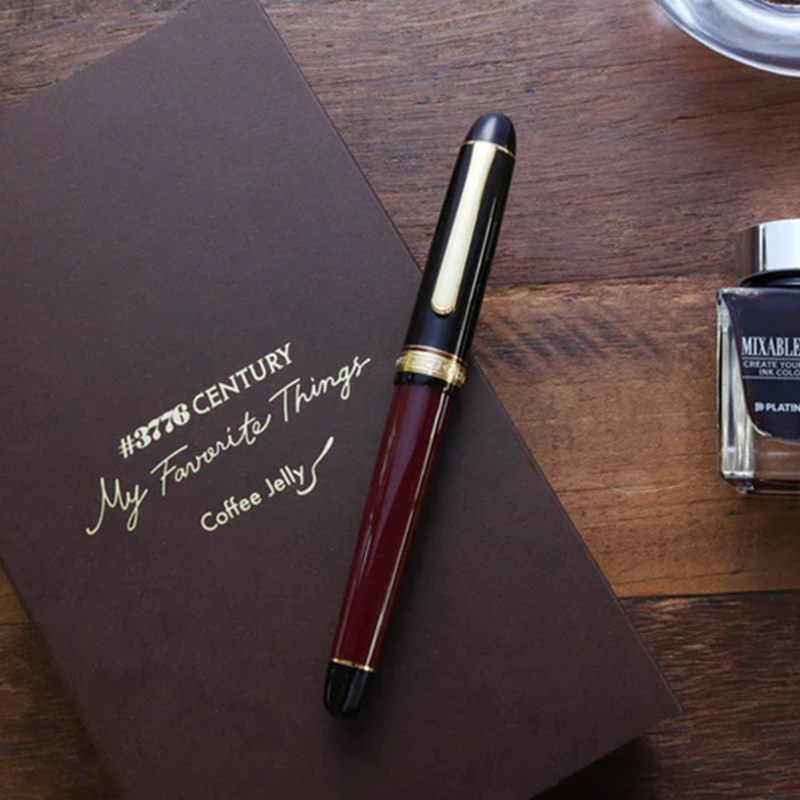 #3776 CENTURY
My Favorite Things
Coffee Jelly
MIXABLE
CREATE YOUR
INK COLO
PLATIN